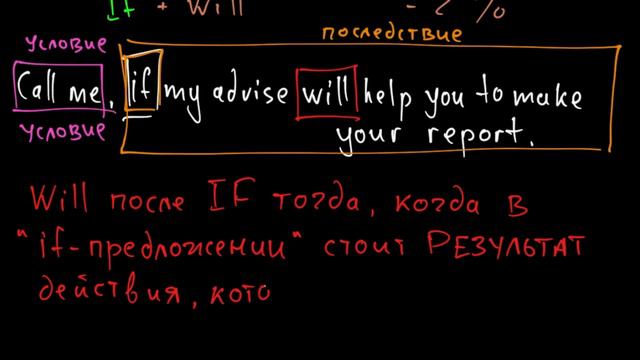 If + Will - 2 %
последствие
условие
Call me, if my advise will help you to make
условие
your report.
Will после IF тогда, когда в
"if-предложении" стоит РЕЗУЛЬТАТ
действия, кото